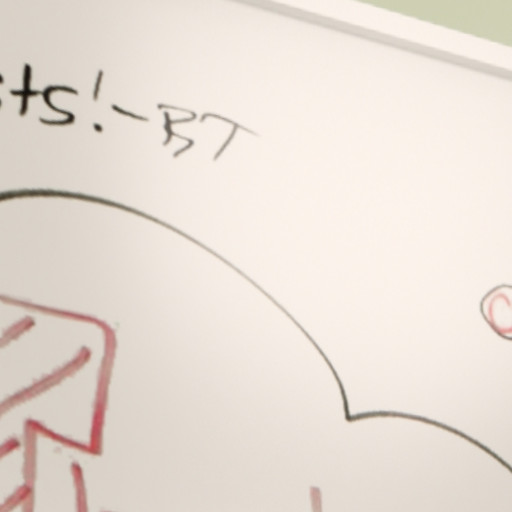 sts! - BT